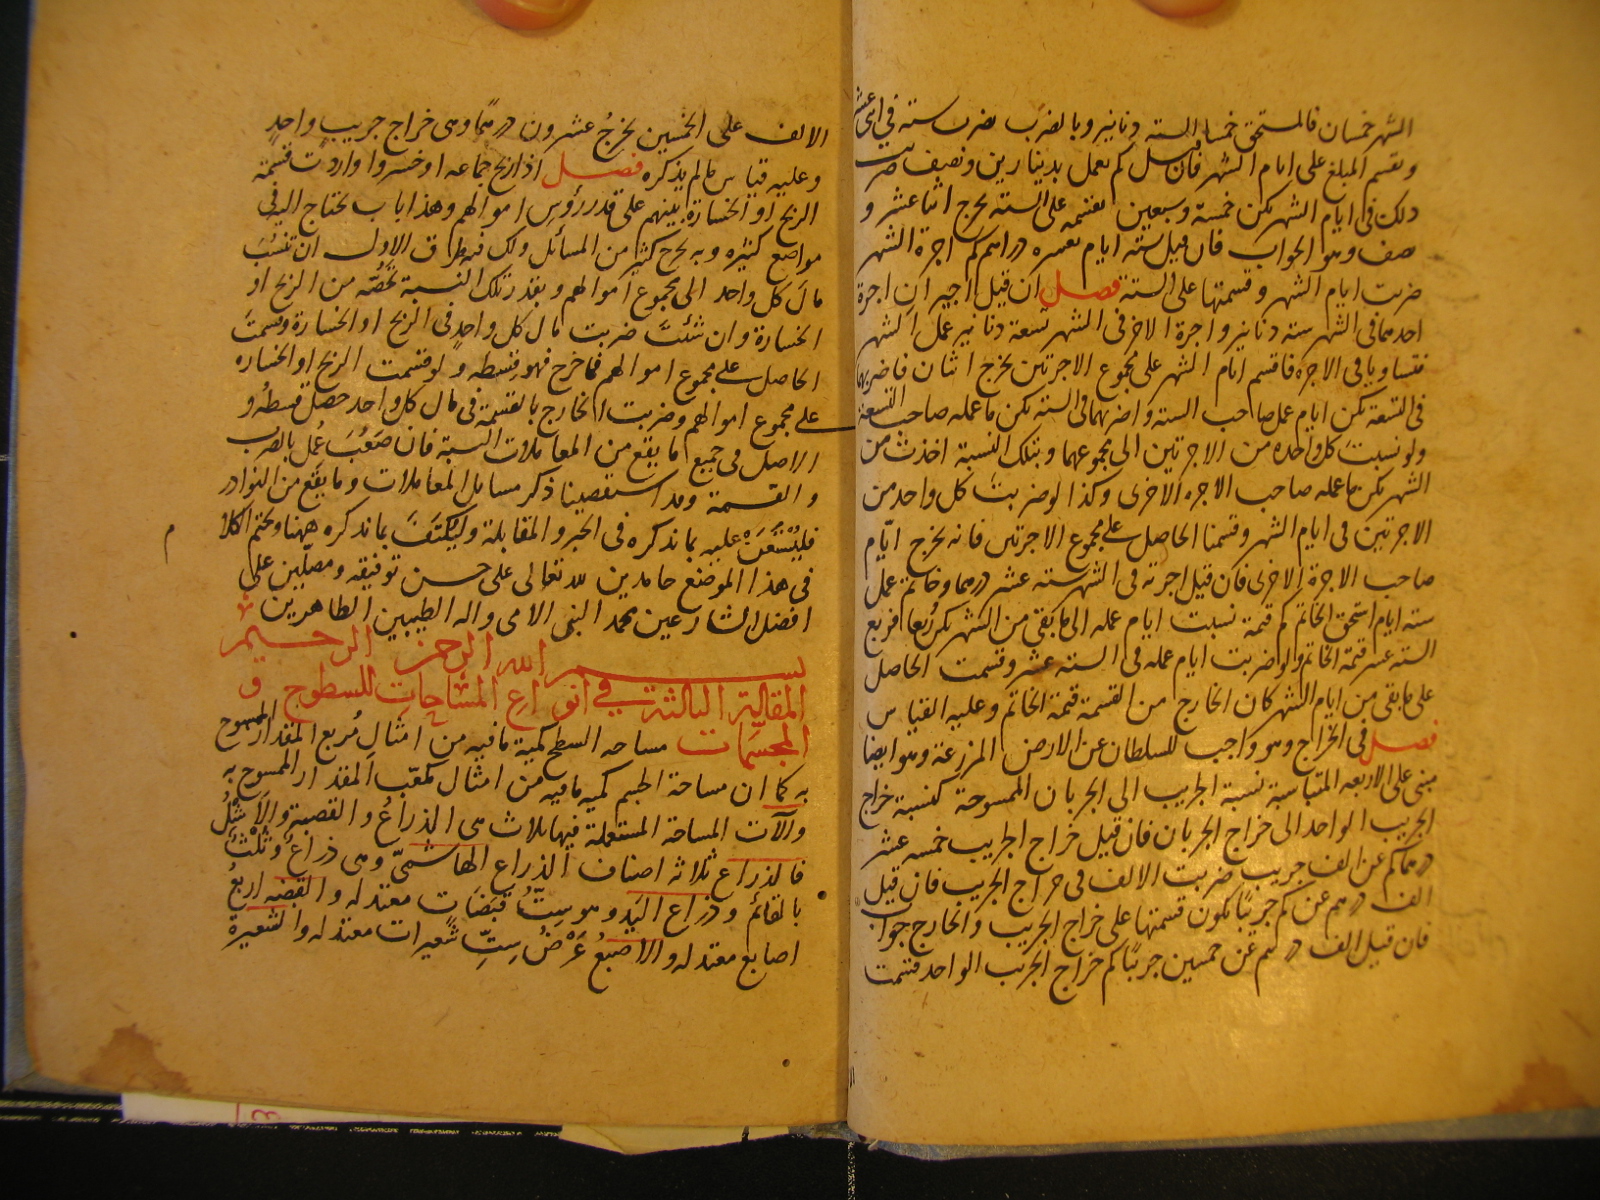 الشهر خمسان فالمستحق خمسا الستة دنانير وبالضرب نضرب ستة في اثنى عشر
ونقسم المبلغ على ايام الشهر فان قيل كم يعمل بدينارين ونصف ضربت
ذلك فى ايام الشهر يكن خمسة وسبعين نقسمه على الستة يخرج اثنا عشر و
نصف وهو الجواب فان قيل ستة ايام بعشره دراهم كم اجرة الشهر
ضربت ايام الشهر وقسمتها على الستة فصل ان قيل اجيران اجرة
احدهما فى الشهر ستة دنانير واجرة الاخر فى الشهر تسعة دنانير عمل الشهر
فتساويا فى الاجرة فاقسم ايام الشهر على مجموع الاجرتين يخرج اثنان فاضربهما
فى التسعة يكن ايام عمل صاحب الستة واضربهما فى الستة يكن ما عمله صاحب التسعة
ولو نسبت كل واحدة من الاجرتين الى مجموعهما وبتلك النسبة اخذت من
الشهر يكن ما عمله صاحب الاجرة الاخرى وكذا لو ضربت كل واحد من
الاجرتين فى ايام الشهر وقسمنا الحاصل على مجموع الاجرتين فانه يخرج ايام
صاحب الاجرة الاخرى فان قيل اجرته فى الشهر ستة عشر درهما وخاتم عمل
ستة ايام استحق الخاتم كم قيمته نسبت ايام عمله الى ما بقى من الشهر يكن ربعا فربع
الستة عشر قيمة الخاتم ولو ضربت ايام عمله فى الستة عشر وقسمت الحاصل
على ما بقى من ايام الشهر كان الخارج من القسمة قيمة الخاتم وعليه القياس
فصل فى الخراج وهو واجب للسلطان عن الارض المزرعة وهو ايضا
مبنى على الاربعة المتناسبة نسبة الجريب الى الجربان الممسوحة كنسبة خراج
الجريب الواحد الى خراج الجربان فان قيل خراج الجريب خمسة عشر
درهما كم عن الف جريب ضربت الالف فى خراج الجريب فان قيل
الف درهم عن كم جريبا يكون قسمتها على خراج الجريب والخارج جواب
فان قيل الف درهم عن خمسين جريبا كم خراج الجريب الواحد قسمت
الالف على الخمسين يخرج عشرون درهما وهى خراج جريب واحد
وعليه قياس ما لم يذكره فصل اذا ربح جماعه او خسروا واردت قسمة
الربح او الخسارة بينهم على قدر رؤس اموالهم وهذا باب يحتاج اليه فى
مواضع كثيره وبه يخرج كثير من المسائل ولك فيه طرق الاول ان تنسب
مال كل واحد الى مجموع اموالهم وبقدر تلك النسبة تخصه من الربح او
الخسارة وان شئت ضربت مال كل واحد فى الربح او الخسارة وقسمت
الحاصل على مجموع اموالهم فما خرج فهو قسطه ولو قسمت الربح او الخساره
على مجموع اموالهم وضربت الخارج بالقسمة فى مال كل واحد حصل قسطه و
الاصل فى جميع ما يقع من المعاملات النسبة فان صعب عمل بالضرب
والقسمة وقد استقصينا ذكر مسائل المعاملات وما يقع من النوادر
فليستعن عليه بما نذكره فى الجبر والمقابلة وليكتف بما نذكره ههنا ونختم الكلام
فى هذا الموضع حامدين لله تعالى على حسن توفيقه ومصلين على
افضل الشارعين محمد النبى الامى واله الطيبين الطاهرين
بسم الله الرحمن الرحيم
المقالة الثالثة في انواع المساحات للسطوح و
المجسمات مساحه السطح كمية ما فيه من امثال مربع المقدار الممسوح
به كما ان مساحة الجسم كميه ما فيه من امثال مكعب المقدار الممسوح به
والآت المساحة المستعملة فيها ثلاث هى الذراع والقصبة والاشل
فالذراع ثلاثه اصناف الذراع الهاشمى وهى ذراع وثلث
بالقائم وذراع اليد وهو ست قبضات معتدله والقبضه اربع
اصابع معتدله والاصبع عرض ست شعيرات معتدله والشعيرة